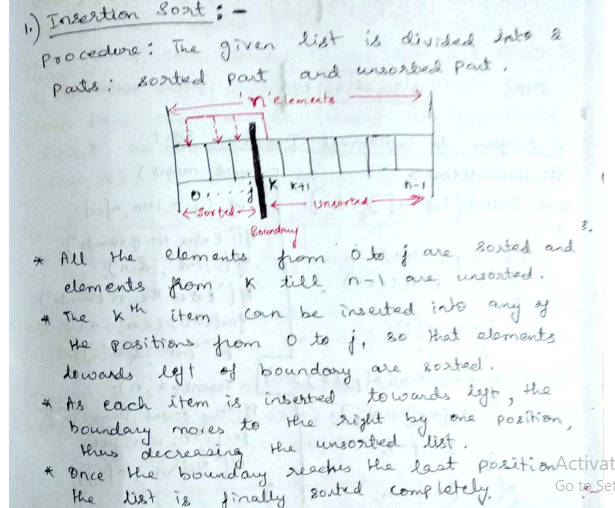 1.) Insertion Sort :-
Procedure : The given list is divided into 2
Parts : sorted part and unsorted part.
'n' elements
0 . . . . j K K+1 n-1
Sorted Unsorted
Boundary
* All the elements from 0 to j are sorted and
elements from K till n-1 are unsorted.
* The Kth item can be inserted into any of
the positions from 0 to j, so that elements
towards left of boundary are sorted.
* As each item is inserted towards left, the
boundary moves to the right by one position,
thus decreasing the unsorted list.
* Once the boundary reaches the last position
the list is finally sorted completely.
Activat
Go to Set